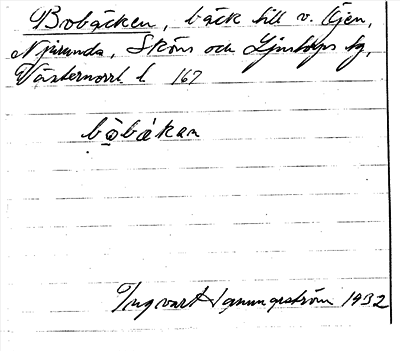 Bobäcken, bäck till v. Öjen,
Njurunda, Sköns och Ljustorps tg,
Västernorrl l 167
bòbákan
Ingvart 1932